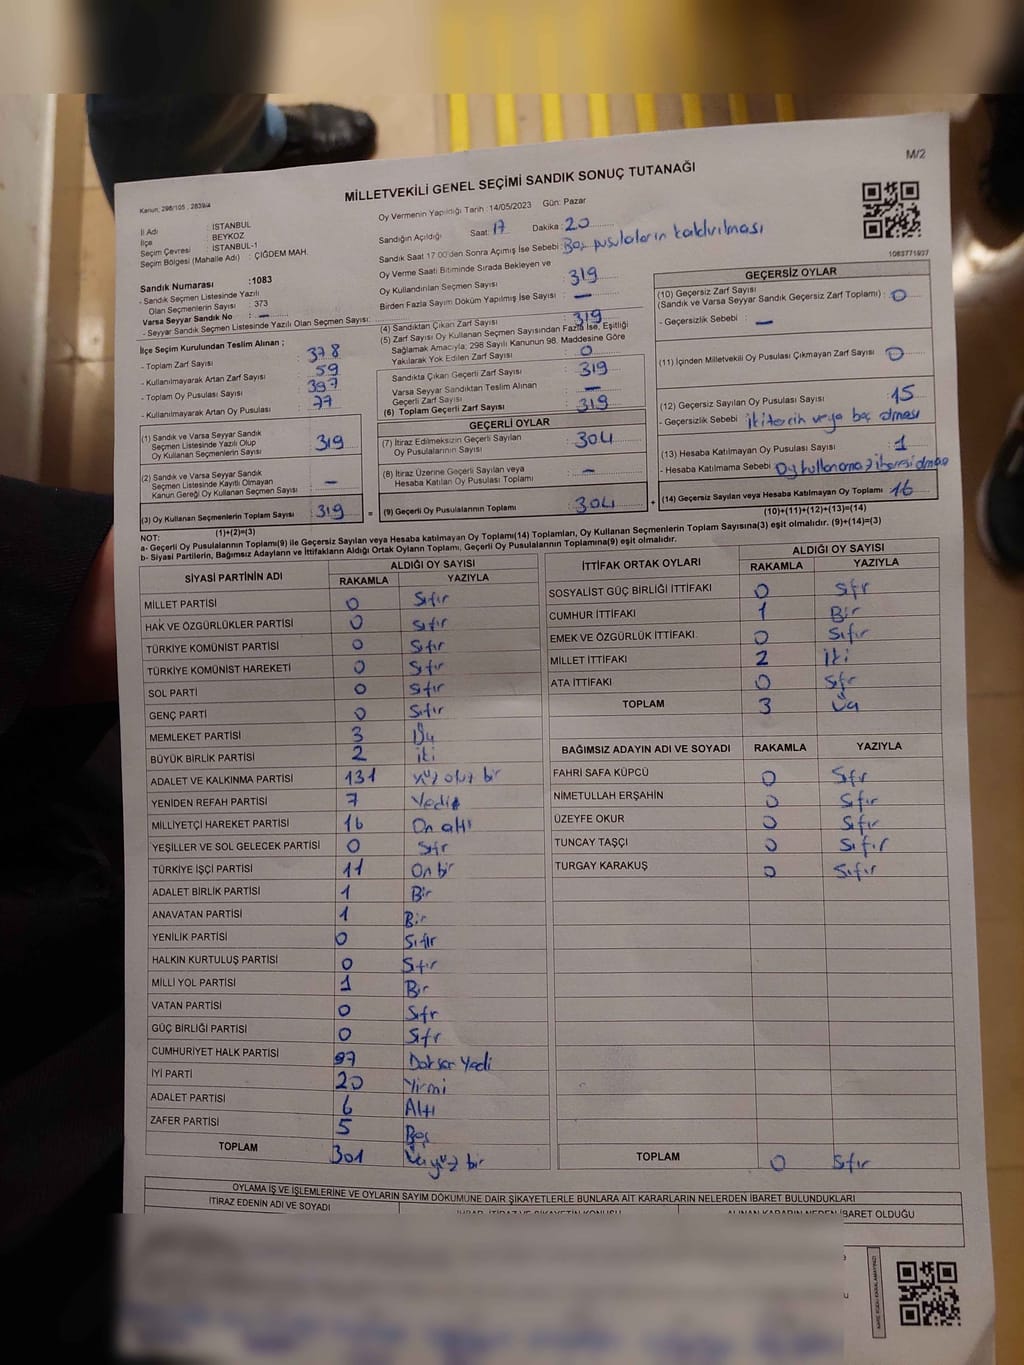 M/2
MİLLETVEKİLİ GENEL SEÇİMİ SANDIK SONUÇ TUTANAĞI
Kanun, 298/105 , 2839/4
İl Adı : İSTANBUL
İlçe : BEYKOZ
Seçim Çevresi : İSTANBUL-1
Seçim Bölgesi (Mahalle Adı) : ÇİĞDEM MAH.
Oy Vermenin Yapıldığı Tarih :14/05/2023 Gün: Pazar
Sandığın Açıldığı Saat: 17 Dakika: 20
Sandık Saat 17:00'den Sonra Açımış İse Sebebi : Boş pusulaların kaldırılması
Oy Verme Saati Bitiminde Sırada Bekleyen ve
Oy Kullandırılan Seçmen Sayısı : 319
Birden Fazla Sayım Döküm Yapılmış İse Sayısı : —
1083771937
Sandık Numarası :1083
- Sandık Seçmen Listesinde Yazılı
Olan Seçmenlerin Sayısı : 373
Varsa Seyyar Sandık No : —
- Seyyar Sandık Seçmen Listesinde Yazılı Olan Seçmen Sayısı:
İlçe Seçim Kurulundan Teslim Alınan ;
- Toplam Zarf Sayısı : 378
- Kullanılmayarak Artan Zarf Sayısı : 59
- Toplam Oy Pusulası Sayısı : 397
- Kullanılmayarak Artan Oy Pusulası : 77
(1) Sandık ve Varsa Seyyar Sandık
Seçmen Listesinde Yazılı Olup
Oy Kullanan Seçmenlerin Sayısı : 319
(2) Sandık ve Varsa Seyyar Sandık
Seçmen Listesinde Kayıtlı Olmayan
Kanun Gereği Oy Kullanan Seçmen Sayısı : —
(3) Oy Kullanan Seçmenlerin Toplam Sayısı : 319
(1)+(2)=(3)
(4) Sandıktan Çıkan Zarf Sayısı : 319
(5) Zarf Sayısı Oy Kullanan Seçmen Sayısından Fazla İse, Eşitliği
Sağlamak Amacıyla, 298 Sayılı Kanunun 98. Maddesine Göre
Yakılarak Yok Edilen Zarf Sayısı : 0
Sandıkta Çıkan Geçerli Zarf Sayısı : 319
Varsa Seyyar Sandıktan Teslim Alınan
Geçerli Zarf Sayısı : —
(6) Toplam Geçerli Zarf Sayısı : 319
GEÇERLİ OYLAR
(7) İtiraz Edilmeksizin Geçerli Sayılan
Oy Pusulalarının Sayısı : 304
(8) İtiraz Üzerine Geçerli Sayılan veya
Hesaba Katılan Oy Pusulası Toplamı : —
= (9) Geçerli Oy Pusulalarının Toplamı : 304
GEÇERSİZ OYLAR
(10) Geçersiz Zarf Sayısı
(Sandık ve Varsa Seyyar Sandık Geçersiz Zarf Toplamı) : 0
- Geçersizlik Sebebi : —
(11) İçinden Milletvekili Oy Pusulası Çıkmayan Zarf Sayısı : 0
(12) Geçersiz Sayılan Oy Pusulası Sayısı : 15
- Geçersizlik Sebebi : iki tercih veya boş olması
(13) Hesaba Katılmayan Oy Pusulası Sayısı : 1
- Hesaba Katılmama Sebebi : Oy kullanamaz ibaresi olması
+ (14) Geçersiz Sayılan veya Hesaba Katılmayan Oy Toplamı : 16
(10)+(11)+(12)+(13)=(14)
NOT:
a- Geçerli Oy Pusulalarının Toplamı(9) ile Geçersiz Sayılan veya Hesaba katılmayan Oy Toplamı(14) Toplamları, Oy Kullanan Seçmenlerin Toplam Sayısına(3) eşit olmalıdır. (9)+(14)=(3)
b- Siyasi Partilerin, Bağımsız Adayların ve İttifakların Aldığı Ortak Oyların Toplamı, Geçerli Oy Pusulalarının Toplamına(9) eşit olmalıdır.
SİYASİ PARTİNİN ADI ALDIĞI OY SAYISI
RAKAMLA YAZIYLA
MİLLET PARTİSİ 0 Sıfır
HAK VE ÖZGÜRLÜKLER PARTİSİ 0 Sıfır
TÜRKİYE KOMÜNİST PARTİSİ 0 Sıfır
TÜRKİYE KOMÜNİST HAREKETİ 0 Sıfır
SOL PARTİ 0 Sıfır
GENÇ PARTİ 0 Sıfır
MEMLEKET PARTİSİ 3 Üç
BÜYÜK BİRLİK PARTİSİ 2 iki
ADALET VE KALKINMA PARTİSİ 131 Yüz otuz bir
YENİDEN REFAH PARTİSİ 7 Yedi
MİLLİYETÇİ HAREKET PARTİSİ 16 On altı
YEŞİLLER VE SOL GELECEK PARTİSİ 0 Sıfır
TÜRKİYE İŞÇİ PARTİSİ 11 On bir
ADALET BİRLİK PARTİSİ 1 Bir
ANAVATAN PARTİSİ 1 Bir
YENİLİK PARTİSİ 0 Sıfır
HALKIN KURTULUŞ PARTİSİ 0 Sıfır
MİLLİ YOL PARTİSİ 1 Bir
VATAN PARTİSİ 0 Sıfır
GÜÇ BİRLİĞİ PARTİSİ 0 Sıfır
CUMHURİYET HALK PARTİSİ 97 Doksan Yedi
İYİ PARTİ 20 Yirmi
ADALET PARTİSİ 6 Altı
ZAFER PARTİSİ 5 Beş
TOPLAM 301 Üçyüz bir
İTTİFAK ORTAK OYLARI ALDIĞI OY SAYISI
RAKAMLA YAZIYLA
SOSYALİST GÜÇ BİRLİĞİ İTTİFAKI 0 Sıfır
CUMHUR İTTİFAKI 1 Bir
EMEK VE ÖZGÜRLÜK İTTİFAKI 0 Sıfır
MİLLET İTTİFAKI 2 İki
ATA İTTİFAKI 0 Sıfır
TOPLAM 3 Üç
BAĞIMSIZ ADAYIN ADI VE SOYADI RAKAMLA YAZIYLA
FAHRİ SAFA KÜPCÜ 0 Sıfır
NİMETULLAH ERŞAHİN 0 Sıfır
ÜZEYFE OKUR 0 Sıfır
TUNCAY TAŞÇI 0 Sıfır
TURGAY KARAKUŞ 0 Sıfır
TOPLAM 0 Sıfır
OYLAMA İŞ VE İŞLEMLERİNE VE OYLARIN SAYIM DÖKÜMÜNE DAİR ŞİKAYETLERLE BUNLARA AİT KARARLARIN NELERDEN İBARET BULUNDUKLARI
İTİRAZ EDENİN ADI VE SOYADI
ALINAN KARARIN NEDEN İBARET OLDUĞU